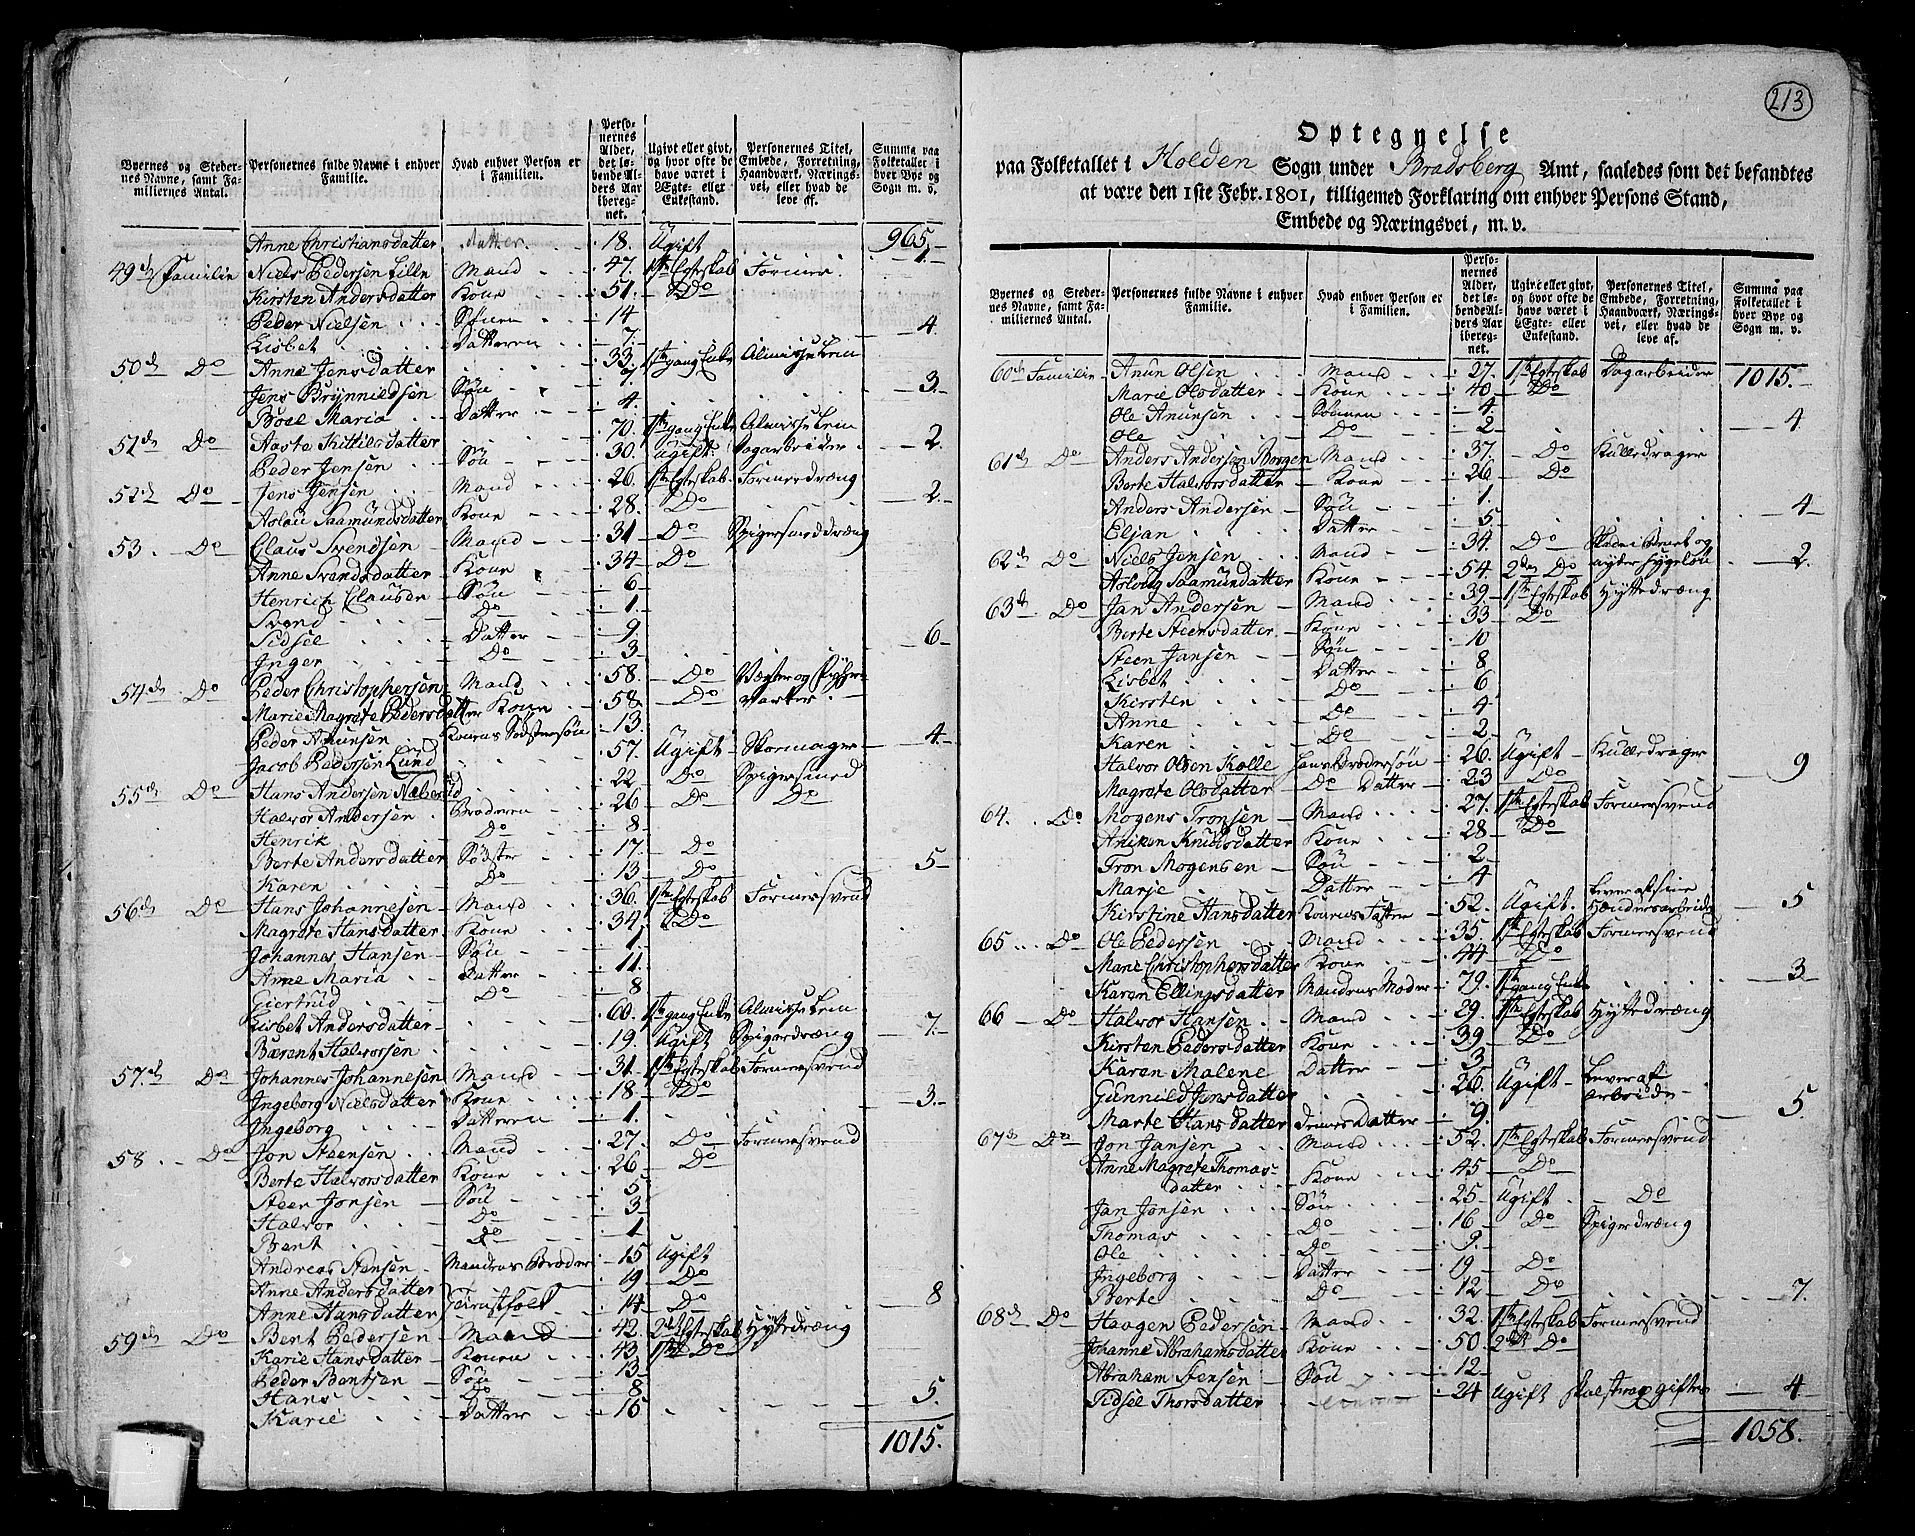 Byernes og Steder-
nes Navne, samt Fa-
miliernes Antal.
Personernes fulde Navne i enhver
Familie.
Hvad enhver Person er
i Familien.
Perso-
nernes
Alder,
det lø-
bende Al-
ders Aar
ibereg-
net.
Ugivt eller givt,
og hvor ofte de
have været i
Ægte- eller
Enkestand.
Personernes Titel,
Embede, Forretning,
Haandværk, Nærings-
vei, eller hvad de
leve af.
Summa paa
Folketallet i
hver Bye og
Sogn m. v.
Anne Christiansdatter Datter 18. Ugift 965.
49de Familie Niels Pedersen Lille Mand 47. 1ste Egteskab Former 1.
Kirsten Andersdatter Kone 51. Do
Peder Nielsen Sønnen 14
Lisbet Datteren 7. 4.
50de Do Anne Jensdatter 33. 1ste gang Enke Almisse Lem
Jens Brynnildsen Søn 7.
Boel Maria Datter 4. 3.
51de Do Aaste Kittilsdatter 70. 1ste gang Enke Almisse Lem
Peder Jensen Søn 30. Ugift. Dagarbeider 2.
52de Do Jens Jensen Mand 26. 1ste Egteskab Formerdræng
Aslau Saamundsdatter Kone 28. Do 2.
53. Do Claus Svendsen Mand 31 Do Spigersmeddræng
Anne Svendsdatter Kone 34 Do
Henrich Clausen Søn 6
Svend Do 1.
Sidsel Datter 9
Inger Do 3 6
54de Do Peder Christophersen Mand 58. Do Vægter og
Marie Magrete Pedersdatter Kone 58 Do
Peder Anunsen Konens Søstersøn 13.
Jacob Pedersen Lund 57. Ugift Skomager 4.
55de Do Hans Andersen 22 Do Spigersmed
Halvor Andersen Broderen 26 Do Do
Henrik Do 8
Berte Andersdatter Søster 17. Do
Karen Do 13 Do 5
56de Do Hans Johannesen Mand 36. 1ste Egteskab Formersvend
Magrete Hansdatter Kone 34 Do
Johannes Hansen Søn 1
Anne Maria Datter 11.
Giertrud Do 8
Lisbet Andersdatter 60. 1ste gang Enke Almisse Lem
Bærent Halvorsen 19. Ugift Spigerdræng 7.
57de Do Johannes Johannesen Mand 31. 1ste Egteskab Formersvend
Ingeborg Nielsdatter Kone 18 Do
Ingeborg Datteren 1. 3.
58 Do Jon Steensen Mand 27. Do Formersvend
Berte Halvorsdatter Kone 26 Do
Steen Jonsen Søn 5
Halvor Do 3
Bent Do 1
Andreas Stensen Mandens Broder 15 Ugift
Anne Andersdatter 19 Do
Anne Hansdatter Tienistfolk 14 Do 8
59de Do Bent Pedersen Mand 42. 2det Egteskab Hyttedræng
Karie Hansdatter Konen 43 1ste Do
Peder Bentsen Søn 13
Hans Do 8
Karie Datter 16 5.
1015.
213
Optegnelse
paa Folketallet i Holden Sogn under Bradsberg Amt, saaledes som det befandtes
at være den 1ste Febr. 1801, tilligemed Forklaring om enhver Persons Stand,
Embede og Næringsvei, m. v.
Byernes og Steder-
nes Navne, samt Fa-
miliernes Antal.
Personernes fulde Navne i enhver
Familie.
Hvad enhver Person er
i Familien.
Perso-
nernes
Alder,
det lø-
bende Al-
ders Aar
ibereg-
net.
Ugivt eller givt,
og hvor ofte de
have været i
Ægte- eller
Enkestand.
Personernes Titel,
Embede, Forretning,
Haandværk, Nærings-
vei, eller hvad de
leve af.
Summa paa
Folketallet i
hver Bye og
Sogn m. v.
60de Familie Anun Olsen Mand 27. 1ste Egteskab Dagarbeider 1015.
Marie Olsdatter Kone 40 Do
Ole Anunsen Sønnen 4
Ole Do 2 4
61de Do Anders Andersen Borgen Mand 37. Do Kulledrager
Berte Halvorsdatter Kone 26 Do
Anders Andersen Søn 1.
Eljan Datter 5 4
62de Do Niels Jensen Mand 34. Do
Asloug Saamundatter Kone 54. 2den Do 2.
63de Do Jan Andersen Mand 39. 1ste Egteskab Hyttedræng
Berte Steensdatter Kone 33 Do
Steen Jansen Søn 10
Lisbet Datter 8
Kirsten Do 6
Anne Do 4
Karen Do 2
Halvor Olsen Kolle Hans Brodersøn 26. Ugift Kulledrager
Magrete Olsdatter Do Datter 23 Do 9
64. Do Mogens Tronsen Mand 27. 1ste Egteskab Formersvend
Aniken Knudsdatter Kone 28 Do
Tron Mogensen Søn 2
Marje Datter 4
Kirstine Hansdatter Konens Faster 52. Ugift. Lever af sine Hænders arbeide 5
65 Do Ole Pedersen Mand 35. 1ste Egteskab Formersvend
Marie Christophersdatter Kone 44 Do
Karen Ellingsdatter Mandens Moder 79. 1ste gang Enke 3
66 Do Halvor Hansen Mand 29. 1ste Egteskab Hyttedræng
Kirsten Pedersdatter Kone 39 Do
Karen Malene Datter 3
Gunnild Jensdatter 26. Ugift Lever af arbeide
Marte Hansdatter Datter 9. 5.
67de Do Jon Jansen Mand 52. 1ste Egteskab Formersvend
Anne Magrete Thomas-
datter Kone 45 Do
Jan Jonsen Søn 25 Ugift Do
Thomas Do 16 Do Spigerdræng
Ole Do 9.
Ingeborg Datter 19 Do
Berte Do 12 Do 7.
68de Do Haagen Pedersen Mand 32. 1ste Egteskab Formersvend
Johanne Abrahamsdatter Kone 50. 2det Do
Abraham Stensen Søn 12
Sidsel Thorsdatter 24 Ugift 4
1058.